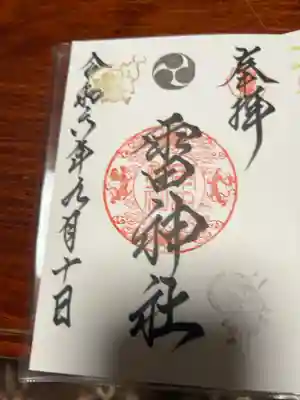 奉拝
雷神社
令和六年九月十日